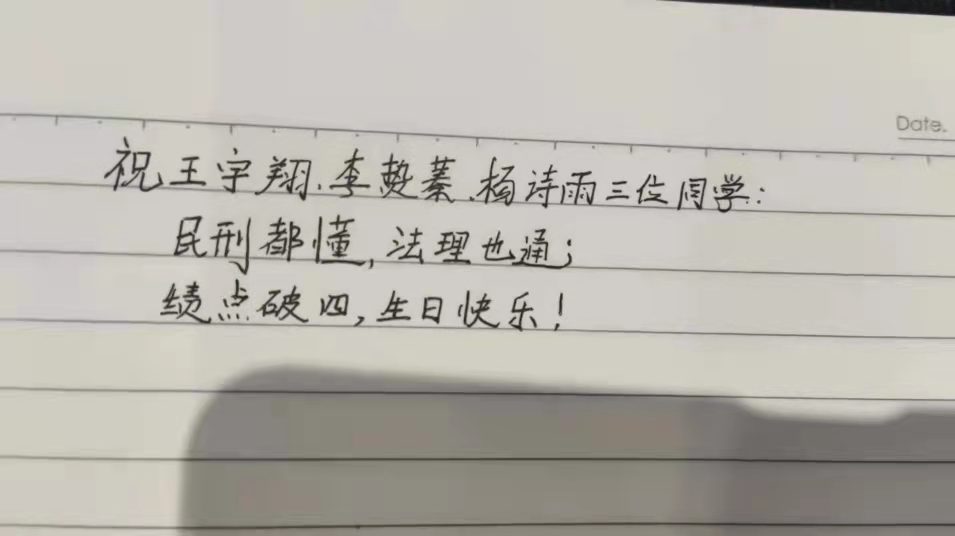 Date.
祝王宇翔、李蓁、杨诗雨三位同学:
民刑都懂,法理也通;
绩点破四,生日快乐!